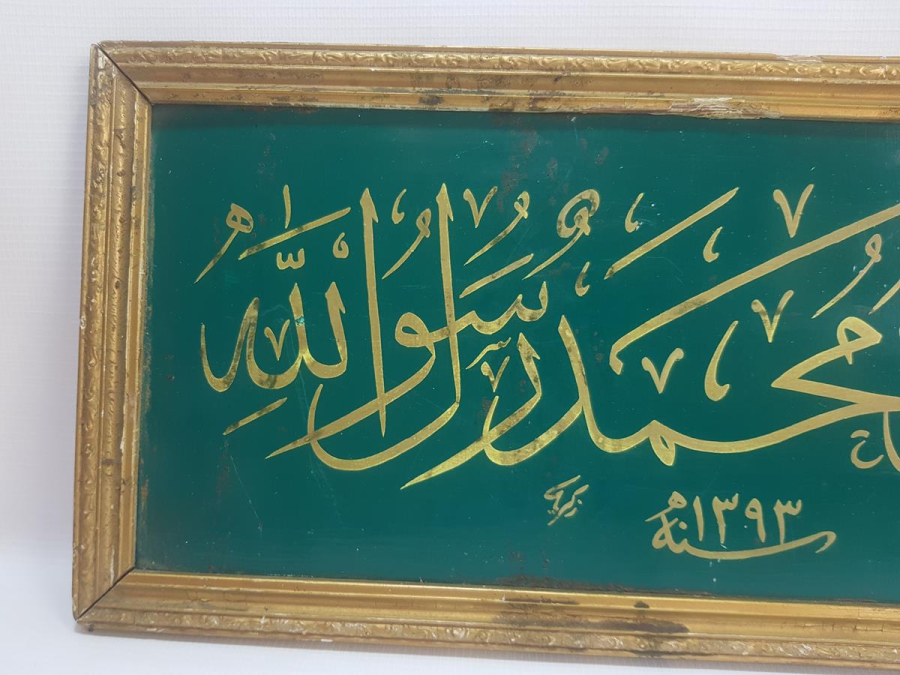 محمد رسول الله
سنة ١٣٩٣